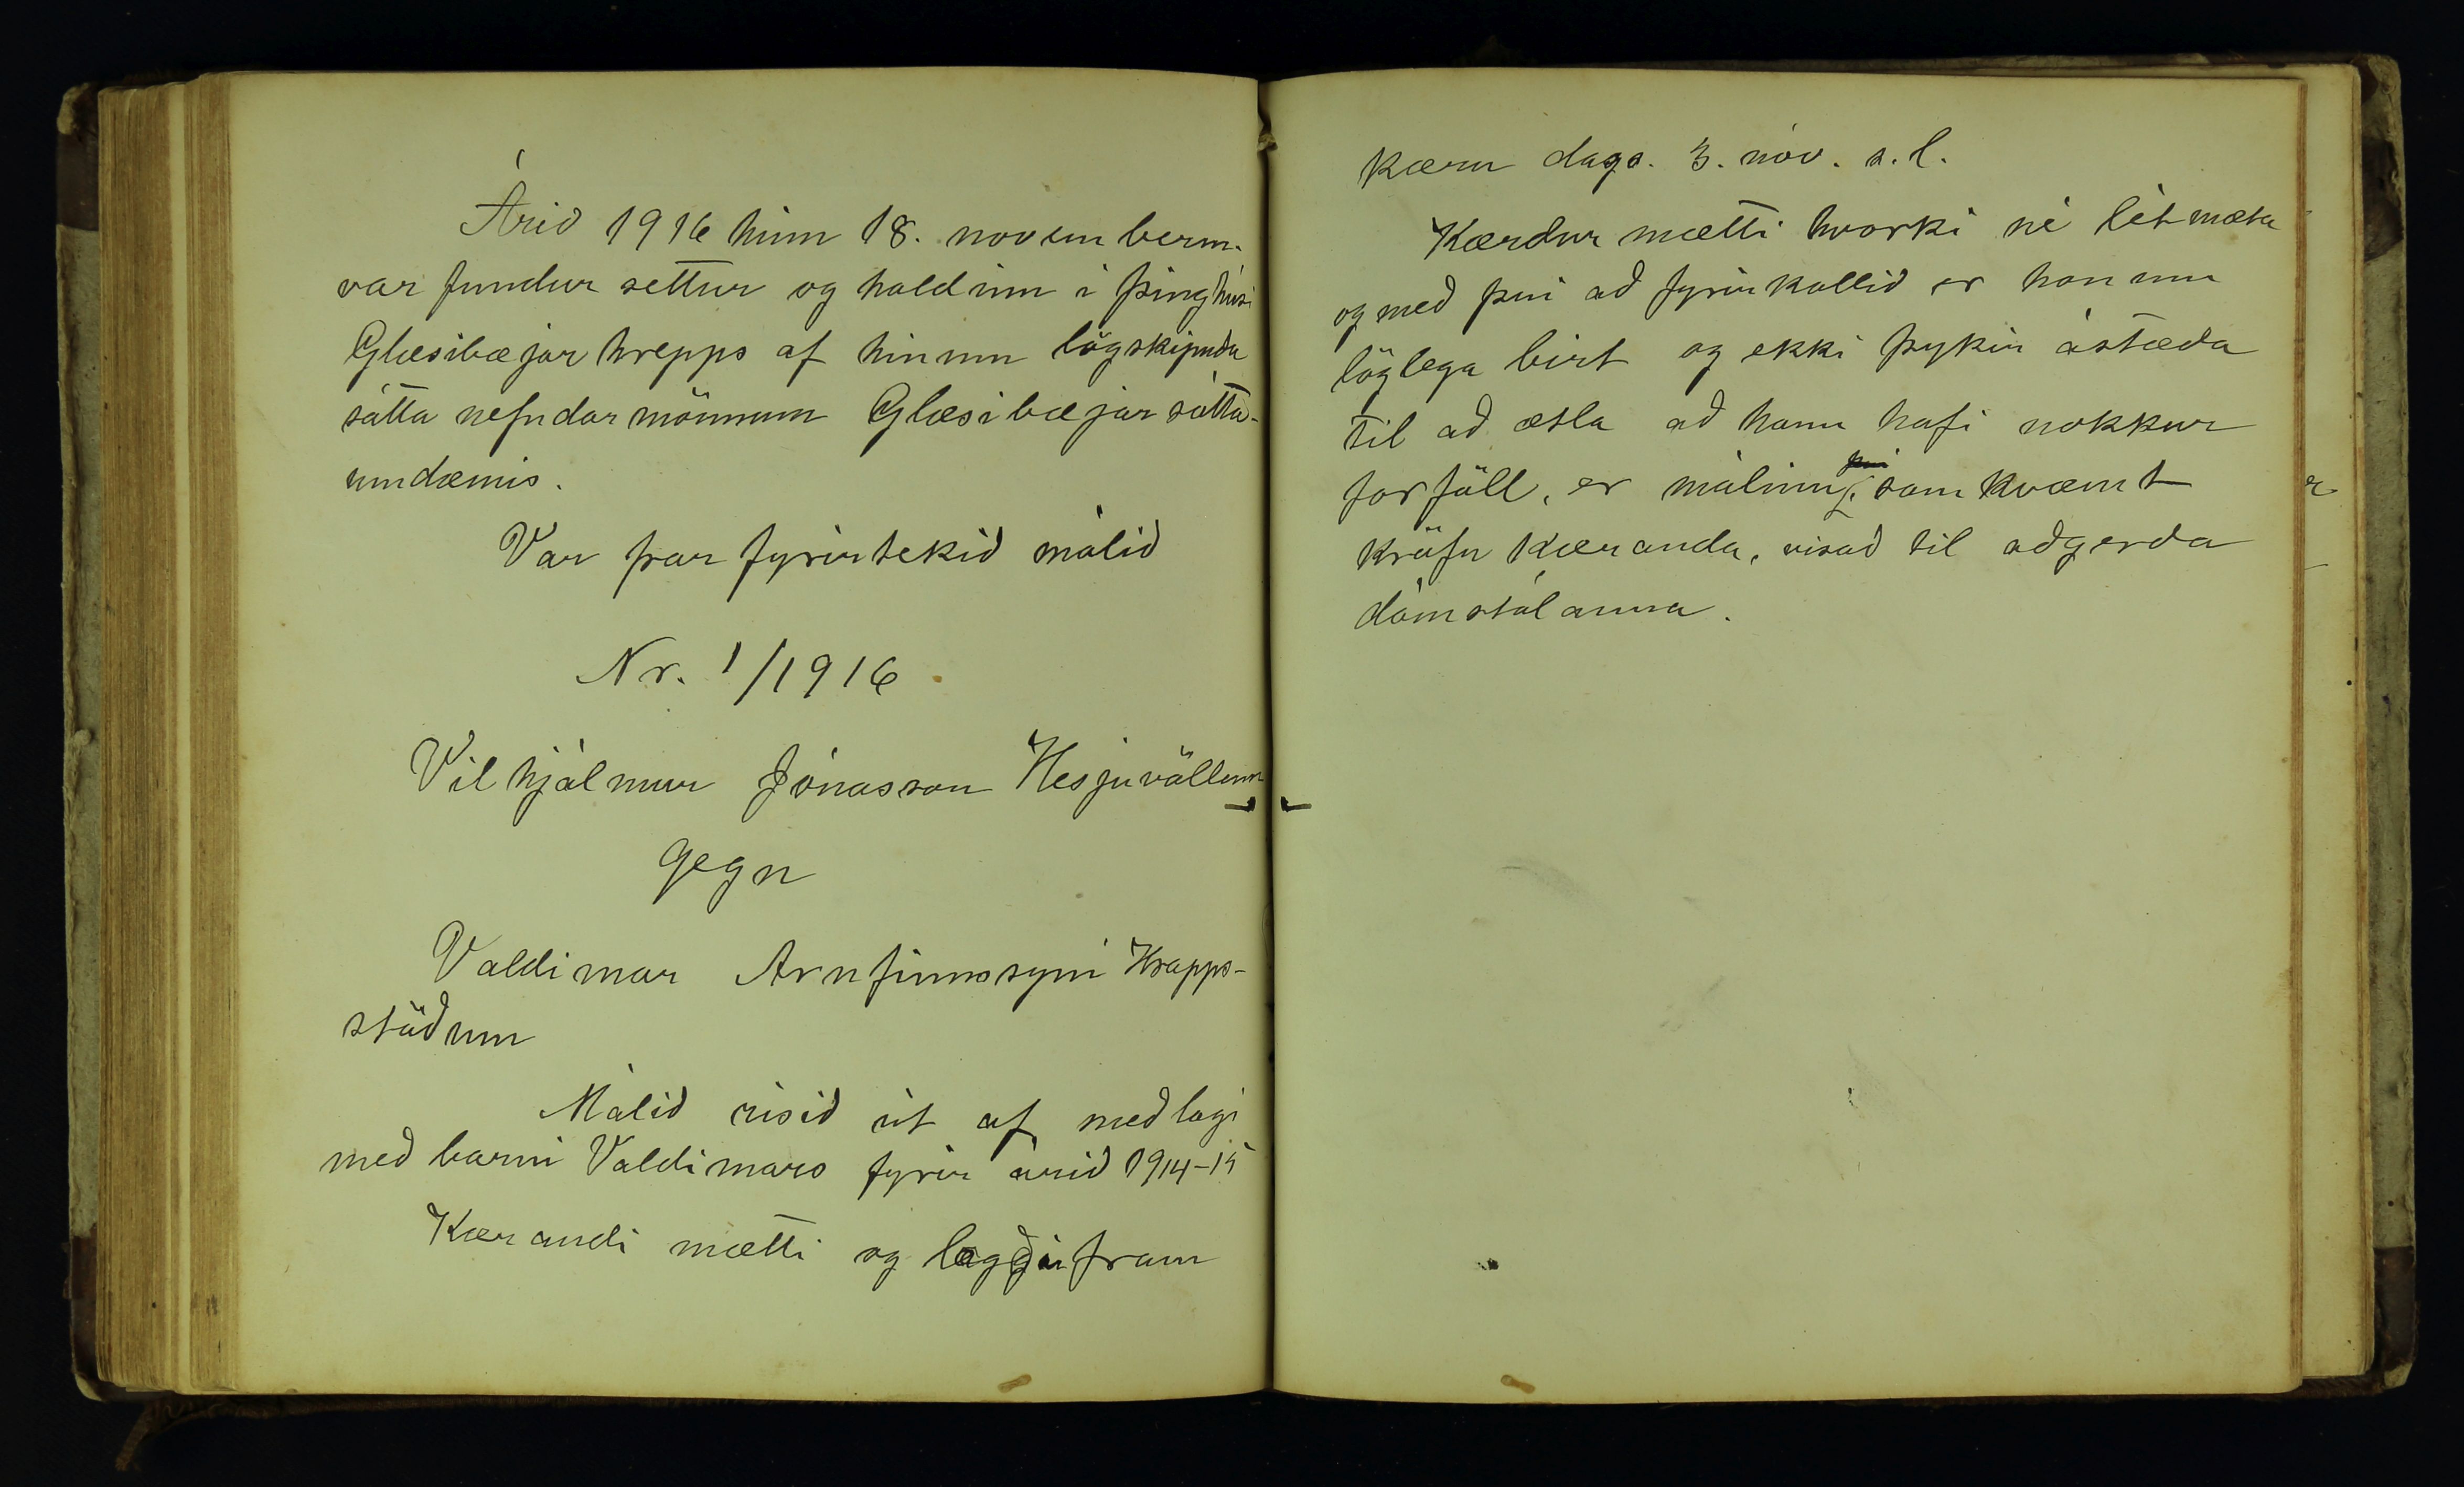 Árið 1916 hinn 18. novemberm.
var fundur settur og haldinn i þinghúsi
Glæsibæjarhrepps af hinum lögskipuðu
sátta nefndarmönnum Glæsibæjar sátta-
umdæmis.
Var þar fyrirtekið málið
Nr. 1/1916
Vilhjálmur Jónasson Hesjuvöllum
gegn
Valdimar Arnfinnssyni Krapps-
stöðum
Málið risið út af meðlagi
með barni Valdimars fyrir árið 1914-15
Kærandi mætti og lagði fram
kæru dags. 3. nóv. s.l.
Kærður mætti hvorki né lét mæta
og með þvi að fyrirkallið er honum
löglega birt og ekki þykir ástæða
til að ætla að hann hafi nokkur
forföll, er málinu, samkvæmt
kröfu kæranda, visað til aðgerða
dómstólanna.